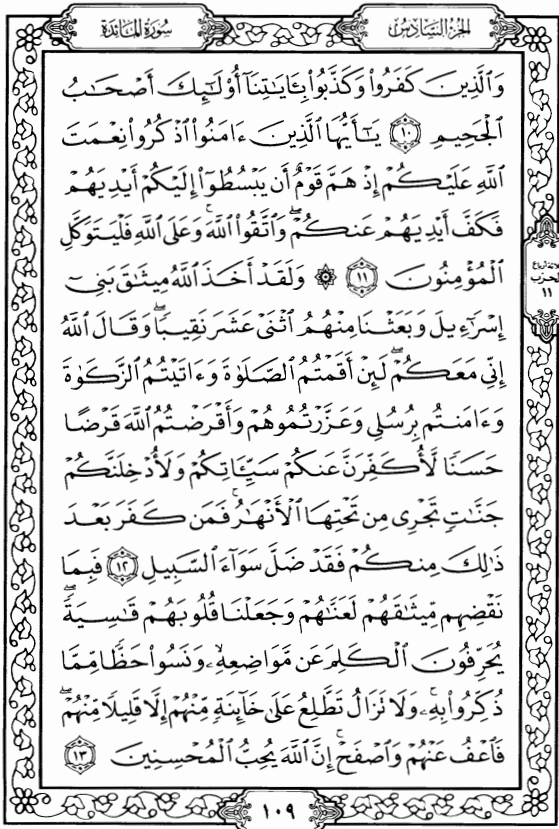 الجزء السادس
سورة المائدة
وَالَّذِينَ كَفَرُوا۟ وَكَذَّبُوا۟ بِـَٔايَٰتِنَآ أُو۟لَٰٓئِكَ أَصْحَٰبُ
الْجَحِيمِ ١٠ يَٰٓأَيُّهَا الَّذِينَ ءَامَنُوا۟ اذْكُرُوا۟ نِعْمَتَ
اللَّهِ عَلَيْكُمْ إِذْ هَمَّ قَوْمٌ أَن يَبْسُطُوٓا۟ إِلَيْكُمْ أَيْدِيَهُمْ
فَكَفَّ أَيْدِيَهُمْ عَنكُمْ ۖ وَاتَّقُوا۟ اللَّهَ ۚ وَعَلَى اللَّهِ فَلْيَتَوَكَّلِ
الْمُؤْمِنُونَ ١١ ۞ وَلَقَدْ أَخَذَ اللَّهُ مِيثَٰقَ بَنِىٓ
إِسْرَٰٓءِيلَ وَبَعَثْنَا مِنْهُمُ اثْنَىْ عَشَرَ نَقِيبًا ۖ وَقَالَ اللَّهُ
إِنِّى مَعَكُمْ ۖ لَئِنْ أَقَمْتُمُ الصَّلَوٰةَ وَءَاتَيْتُمُ الزَّكَوٰةَ
وَءَامَنتُم بِرُسُلِى وَعَزَّرْتُمُوهُمْ وَأَقْرَضْتُمُ اللَّهَ قَرْضًا
حَسَنًا لَّأُكَفِّرَنَّ عَنكُمْ سَيِّـَٔاتِكُمْ وَلَأُدْخِلَنَّكُمْ
جَنَّٰتٍ تَجْرِى مِن تَحْتِهَا الْأَنْهَٰرُ ۚ فَمَن كَفَرَ بَعْدَ
ذَٰلِكَ مِنكُمْ فَقَدْ ضَلَّ سَوَآءَ السَّبِيلِ ١٢ فَبِمَا
نَقْضِهِم مِّيثَٰقَهُمْ لَعَنَّٰهُمْ وَجَعَلْنَا قُلُوبَهُمْ قَٰسِيَةً ۖ
يُحَرِّفُونَ الْكَلِمَ عَن مَّوَاضِعِهِۦ ۙ وَنَسُوا۟ حَظًّا مِّمَّا
ذُكِّرُوا۟ بِهِۦ ۚ وَلَا تَزَالُ تَطَّلِعُ عَلَىٰ خَآئِنَةٍ مِّنْهُمْ إِلَّا قَلِيلًا مِّنْهُمْ ۖ
فَاعْفُ عَنْهُمْ وَاصْفَحْ ۚ إِنَّ اللَّهَ يُحِبُّ الْمُحْسِنِينَ ١٣
الحزب
١١
١٠٩